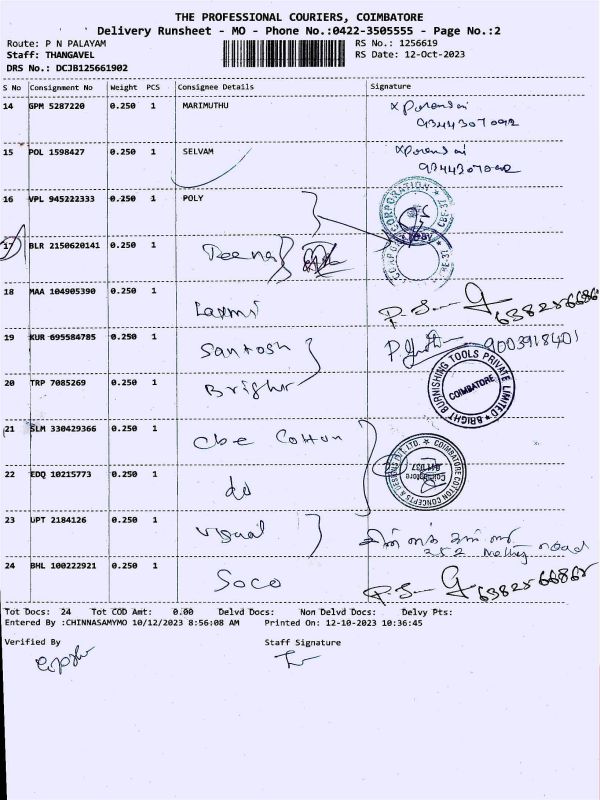 THE PROFESSIONAL COURIERS, COIMBATORE
Delivery Runsheet - MO - Phone No.:0422-3505555 - Page No.:2
Route: P N PALAYAM
RS No.: 1256619
Staff: THANGAVEL
RS Date: 12-Oct-2023
DRS No.: DCJB125661902
S No Consignment No Weight PCS Consignee Details Signature
14 GPM 5287220 0.250 1 MARIMUTHU
9344307092
15 POL 1598427 0.250 1 SELVAM
9344307092
16 VPL 945222333 0.250 1 POLY
CORPORATION
17 BLR 2150620141 0.250 1 Teena
18 MAA 104905390 0.250 1 Laxmi
6382566868
19 KUR 695584785 0.250 1 Santosh
9003918401
20 TRP 7085269 0.250 1 Bright
BRIGHT BURNISHING TOOLS PRIVATE LIMITED
COIMBATORE
21 SLM 330429366 0.250 1 Cbe Cotton
COIMBATORE COTTON CONCEPTS & DESIGNS PVT. LTD.
22 EDQ 10215773 0.250 1 do
23 UPT 2184126 0.250 1 Visual
352 road
24 BHL 100222921 0.250 1 Soco
6382566868
Tot Docs: 24 Tot COD Amt: 0.00 Delvd Docs: Non Delvd Docs: Delvy Pts:
Entered By :CHINNASAMYMO 10/12/2023 8:56:08 AM Printed On: 12-10-2023 10:36:45
Verified By Staff Signature